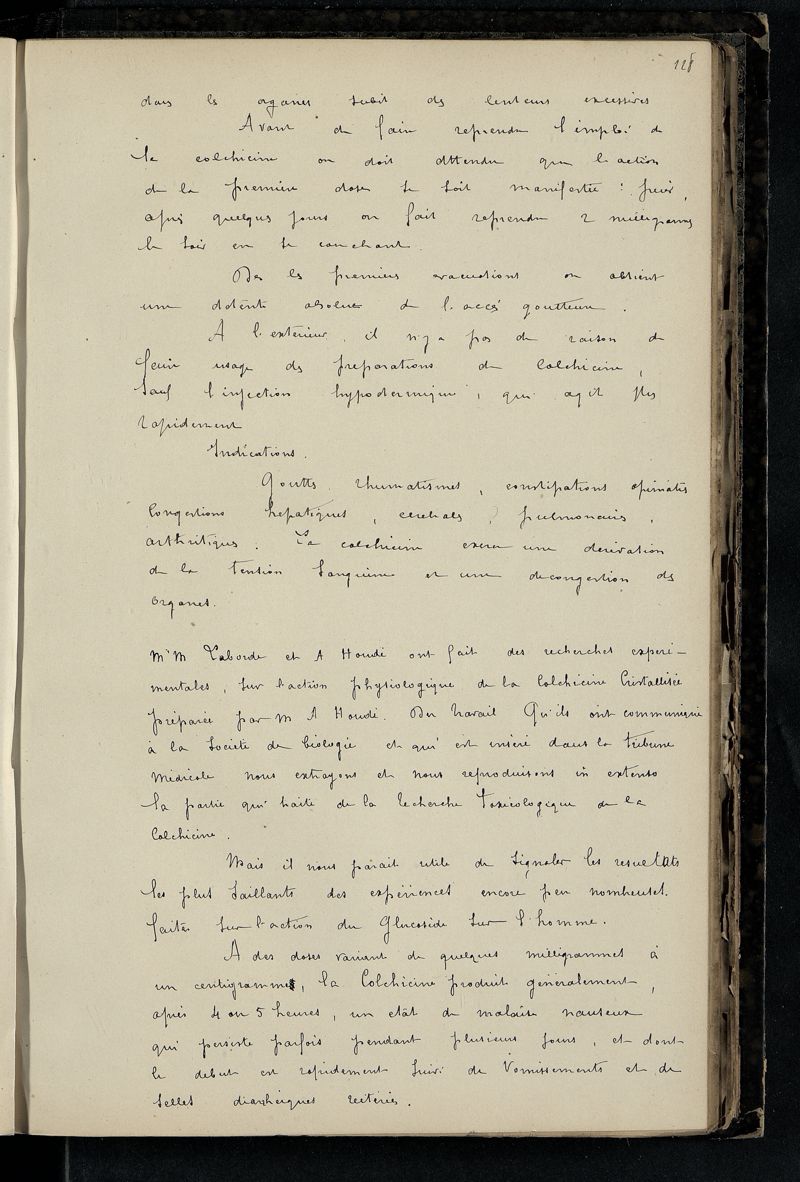 128
dans les organes subit des lenteurs excessives
Avant de faire reprendre l'emploi de
la colchicine on doit attendre que l'action
de la première dose se soit manifestée : puis,
après quelques jours on fait reprendre 2 milligrammes
le soir en se couchant.
Dès les premiers evacuations on obtient
une détente absolue de l'accès goutteux.
A l'extérieur, il n'y a pas de raison de
faire usage des préparations de Colchicine,
sauf l'injection hypodermique, qui agit plus
rapidement
Indications.
Goutte, rhumatismes, constipations opiniatres
Congestions hepatiques, cerebrales, pulmonaires,
arthritiques. La colchicine exerce une derivation
de la tension sanguine et une decongestion des
organes.
M M Laborde et A Houdé ont fait des recherches experi-
mentales, sur l'action physiologique de la Colchicine Cristallisée
préparée par M A Houdé. Du travail Qu'ils ont communiqué
à la Societé de biologie et qui est inséré dans la Tribune
Médicale nous extrayons et nous reproduisons in extenso
la partie qui traite de la recherche toxicologique de la
Colchicine.
Mais il nous parait utile de signaler les resultats
les plus saillants des expériences encore peu nombreuses.
faites sur l'action du Glucoside sur l'homme.
A des doses variant de quelques milligrammes à
un centigramme, la Colchicine produit généralement,
après 4 ou 5 heures, un etât de malaise nauseux
qui persiste parfois pendant plusieurs jours, et dont
le debut est rapidement suivi de Vomissements et de
selles diarrheiques réiterées.